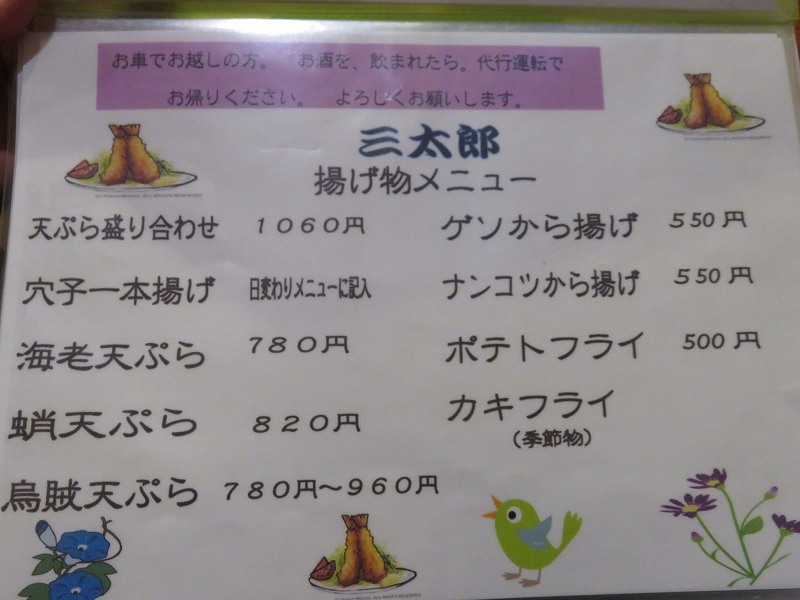 お車でお越しの方。 お酒を、飲まれたら。代行運転で
お帰りください。 よろしくお願いします。
三太郎
揚げ物メニュー
天ぷら盛り合わせ １０６０円
穴子一本揚げ 日変わりメニューに記入
海老天ぷら ７８０円
蛸天ぷら ８２０円
烏賊天ぷら ７８０円～９６０円
ゲソから揚げ ５５０円
ナンコツから揚げ ５５０円
ポテトフライ 500 円
カキフライ
（季節物）